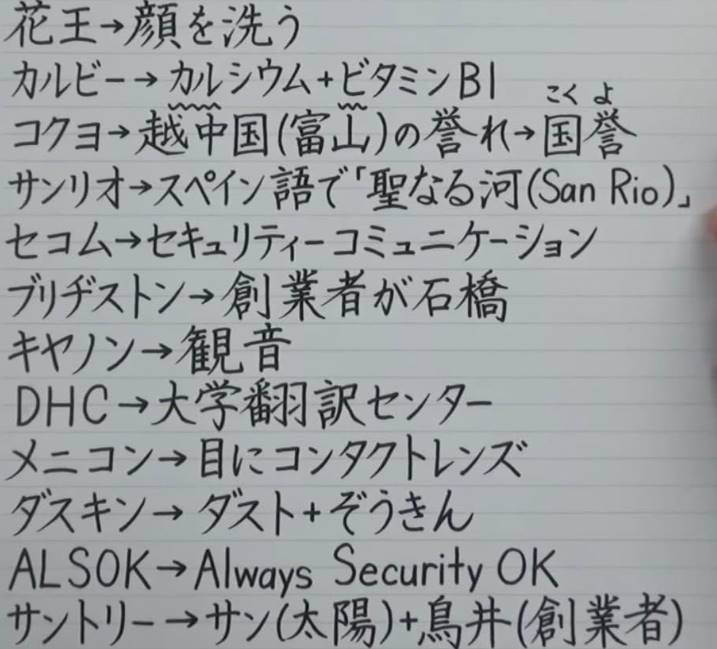 花王→顔を洗う
カルビー→カルシウム+ビタミンB1
こく よ
コクヨ→越中国(富山)の誉れ→国誉
サンリオ→スペイン語で「聖なる河(San Rio)」
セコム→セキュリティーコミュニケーション
ブリヂストン→創業者が石橋
キヤノン→観音
DHC→大学翻訳センター
メニコン→目にコンタクトレンズ
ダスキン→ダスト+ぞうきん
ALSOK→Always Security OK
サントリー→サン(太陽)+鳥井(創業者)